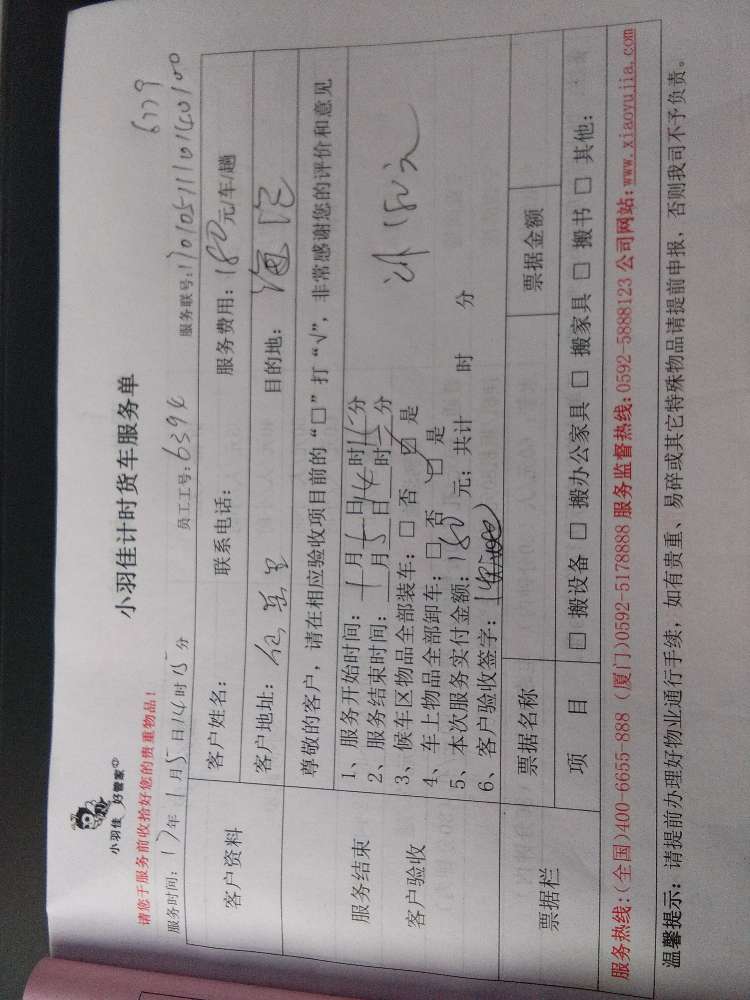 小羽佳 好管家
小羽佳计时货车服务单
6779
请您于服务前收拾好您的贵重物品！
服务时间：17年 1月5日14时15分 员工工号：6394 服务联号：
客户资料
客户姓名： 联系电话： 服务费用：180元/车/趟
客户地址： 目的地：海沧
尊敬的客户，请在相应验收项目前的“□”打“√”，非常感谢您的评价和意见
服务结束
客户验收
1、服务开始时间：1月5日14时15分
2、服务结束时间：月5日14时分
3、候车区物品全部装车：□ 否 ☑ 是
4、车上物品全部卸车：□ 否 ☑ 是
5、本次服务实付金额：180元；共计 时 分
6、客户验收签字：
180元
票据栏
票据名称 票据金额
项 目 □ 搬设备 □ 搬办公家具 □ 搬家具 □ 搬书 □ 其他：
服务热线：(全国)400-6655-888 (厦门)0592-5178888 服务监督热线：0592-5888123 公司网站：www.xiaoyujia.com
温馨提示：请提前办理好物业通行手续，如有贵重、易碎或其它特殊物品请提前申报，否则我司不予负责。